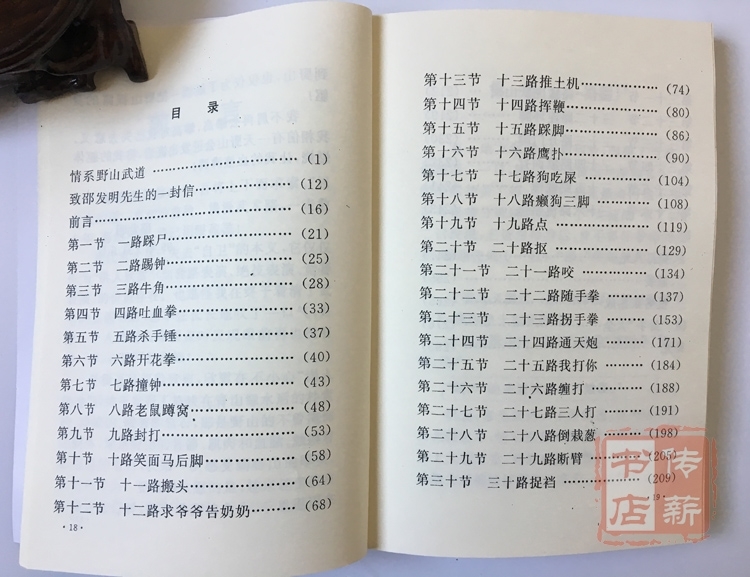 目 录
情系野山武道…………………………(1)
致邵发明先生的一封信………………(12)
前言……………………………………(16)
第一节 一路踩尸……………………(21)
第二节 二路踢钟……………………(25)
第三节 三路牛角……………………(28)
第四节 四路吐血拳…………………(33)
第五节 五路杀手锤…………………(37)
第六节 六路开花拳…………………(40)
第七节 七路撞钟……………………(43)
第八节 八路老鼠蹲窝………………(48)
第九节 九路封打……………………(53)
第十节 十路笑面马后脚……………(58)
第十一节 十一路搬头………………(64)
第十二节 十二路求爷爷告奶奶………(68)
·18·
第十三节 十三路推土机……………(74)
第十四节 十四路挥鞭………………(80)
第十五节 十五路踩脚………………(86)
第十六节 十六路鹰扑………………(90)
第十七节 十七路狗吃屎……………(104)
第十八节 十八路癞狗三脚…………(108)
第十九节 十九路点…………………(119)
第二十节 二十路抠…………………(129)
第二十一节 二十一路咬……………(134)
第二十二节 二十二路随手拳………(137)
第二十三节 二十三路拐手拳………(153)
第二十四节 二十四路通天炮………(171)
第二十五节 二十五路我打你………(184)
第二十六节 二十六路缠打…………(188)
第二十七节 二十七路三人打………(191)
第二十八节 二十八路倒栽葱………(198)
第二十九节 二十九路断臂…………(205)
第三十节 三十路捉裆………………(209)
·19·
传薪
书店